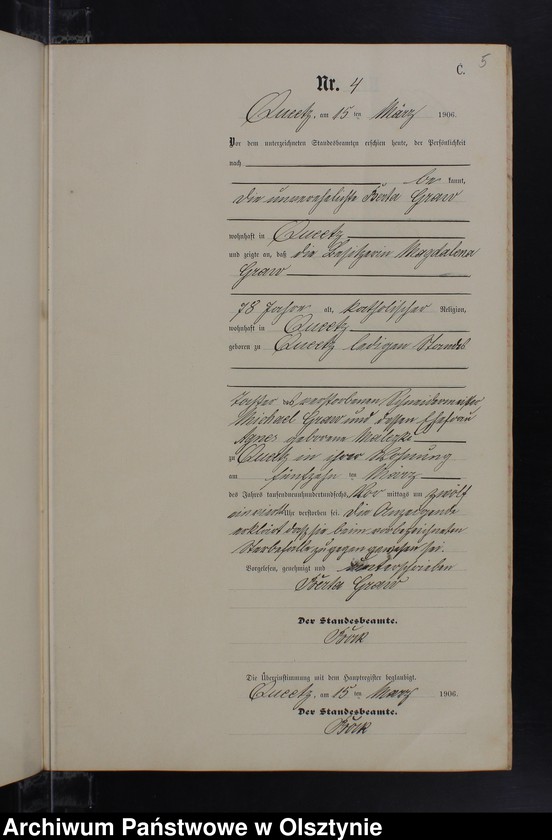 C. 5
Nr. 4
Queetz, am 15 ten März 1906.
Vor dem unterzeichneten Standesbeamten erschien heute, der Persönlichkeit
nach
be kannt,
die unverehelichte Berta Graw
wohnhaft in Queetz
und zeigte an, daß die Besitzerin Magdalena
Graw
78 Jahre alt, katholischer Religion,
wohnhaft in Queetz
geboren zu Queetz ledigen Standes
Tochter des verstorbenen Schneidermeister
Michael Graw und dessen Ehefrau
Agnes geborene
zu Queetz in ihrer Wohnung
am fünfzehn ten März
des Jahres tausendneunhundertundsechs, Vor mittags um zwölf
einviertel Uhr verstorben sei. Die Anzeigende
erklärt daß sie beim vorbezeichneten
Sterbefalle zugegen gewesen sei.
Vorgelesen, genehmigt und unterschrieben
Berta Graw
Der Standesbeamte.
Die Übereinstimmung mit dem Hauptregister beglaubigt.
Queetz, am 15 ten März 1906.
Der Standesbeamte.
Archiwum Państwowe w Olsztynie